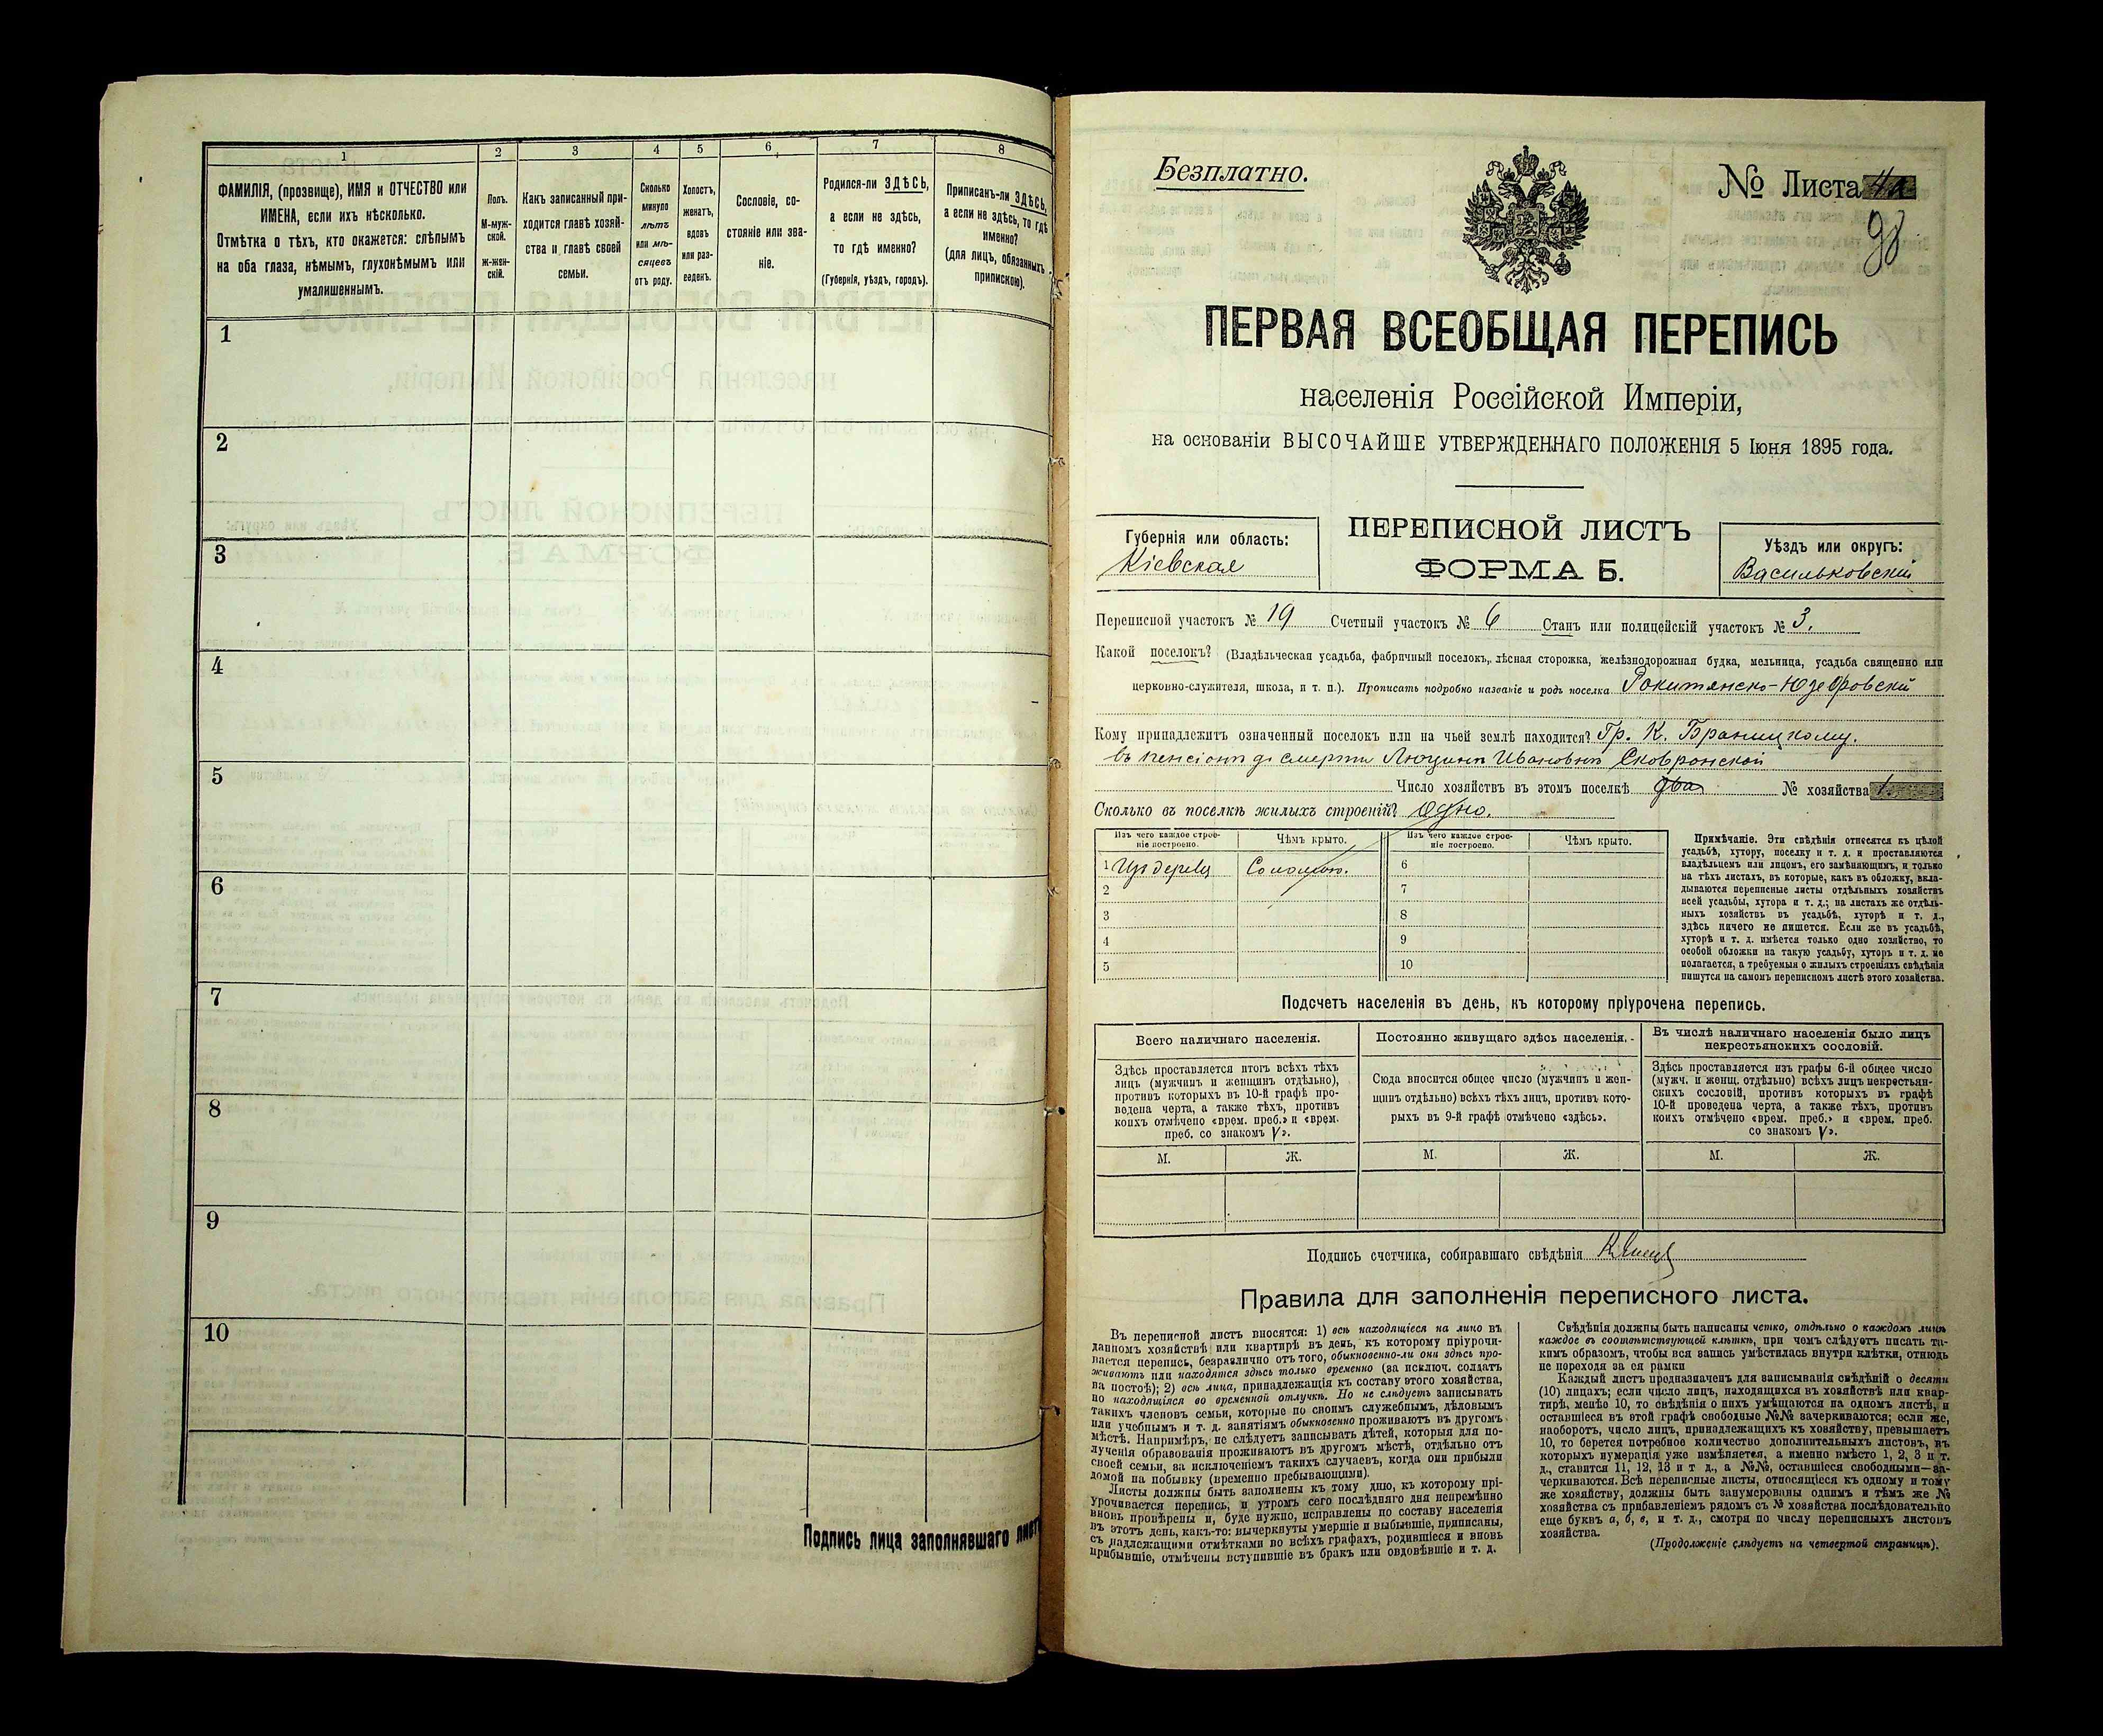 1 2 3 4 5 6 7 8
ФАМИЛІЯ, (прозвище), ИМЯ и ОТЧЕСТВО или
ИМЕНА, если ихъ нѣсколько.
Отмѣтка о тѣхъ, кто окажется: слѣпымъ
на оба глаза, нѣмымъ, глухонѣмымъ или
умалишеннымъ.
Полъ.
М-муж-
ской.
Ж-жен-
скій.
Какъ записанный при-
ходится главѣ хозяй-
ства и главѣ своей
семьи.
Сколько
минуло
лѣтъ
или мѣ-
сяцевъ
отъ роду.
Холостъ,
женатъ,
вдовъ
или раз-
веденъ.
Сословіе, со-
стояніе или зва-
ніе.
Родился-ли ЗДѢСЬ,
а если не здѣсь,
то гдѣ именно?
(Губернія, уѣздъ, городъ).
Приписанъ-ли ЗДѢСЬ,
а если не здѣсь, то гдѣ
именно?
(для лицъ, обязанныхъ
припискою).
1
2
3
4
5
6
7
8
9
10
Подпись лица заполнявшаго
Безплатно.
№ Листа
98
ПЕРВАЯ ВСЕОБЩАЯ ПЕРЕПИСЬ
населенія Россійской Имперіи,
на основаніи ВЫСОЧАЙШЕ УТВЕРЖДЕННАГО ПОЛОЖЕНІЯ 5 Іюня 1895 года.
Губернія или область:
Кіевская
ПЕРЕПИСНОЙ ЛИСТЪ
ФОРМА Б.
Уѣздъ или округъ:
Васильковскій
Переписной участокъ № 19 Счетный участокъ № 6 Станъ или полицейскій участокъ № 3.
Какой поселокъ? (Владѣльческая усадьба, фабричный поселокъ, лѣсная сторожка, желѣзнодорожная будка, мельница, усадьба священно или
церковно-служителя, школа, и т. п.). Прописать подробно названіе и родъ поселка Рокитянско-Юзефовскій
Кому принадлежитъ означенный поселокъ или на чьей землѣ находится? Гр. К. Браницкому.
въ пенсіонъ до смерти Люцинѣ Ивановнѣ Сковронской
Число хозяйствъ въ этомъ поселкѣ два № хозяйства 1.
Сколько въ поселкѣ жилыхъ строеній? Одно.
Изъ чего каждое строе-
ніе построено.
Чѣмъ крыто.
Изъ чего каждое строе-
ніе построено.
Чѣмъ крыто.
1 Изъ дерева Соломою. 6
2 7
3 8
4 9
5 10
Примѣчаніе. Эти свѣдѣнія относятся къ цѣлой
усадьбѣ, хутору, поселку и т. д. и проставляются
владѣльцемъ или лицомъ, его замѣняющимъ, и только
на тѣхъ листахъ, въ которые, какъ въ обложку, вкла-
дываются переписные листы отдѣльныхъ хозяйствъ
всей усадьбы, хутора и т. д.; на листахъ же отдѣль-
ныхъ хозяйствъ въ усадьбѣ, хуторѣ и т. д.,
здѣсь ничего не пишется. Если же въ усадьбѣ,
хуторѣ и т. д. имѣется только одно хозяйство, то
особой обложки на такую усадьбу, хуторъ и т. д. не
полагается, а требуемыя о жилыхъ строеніяхъ свѣдѣнія
пишутся на самомъ переписномъ листѣ этого хозяйства.
Подсчетъ населенія въ день, къ которому пріурочена перепись.
Всего наличнаго населенія.
Здѣсь проставляется итогъ всѣхъ тѣхъ
лицъ (мужчинъ и женщинъ отдѣльно),
противъ которыхъ въ 10-й графѣ про-
ведена черта, а также тѣхъ, противъ
коихъ отмѣчено «врем. преб.» и «врем.
преб. со знакомъ V».
Постоянно живущаго здѣсь населенія.
Сюда вносится общее число (мужчинъ и жен-
щинъ отдѣльно) всѣхъ тѣхъ лицъ, противъ кото-
рыхъ въ 9-й графѣ отмѣчено «здѣсь».
Въ числѣ наличнаго населенія было лицъ
некрестьянскихъ сословій.
Здѣсь проставляется изъ графы 6-й общее число
(мужч. и женщ. отдѣльно) всѣхъ лицъ некрестьян-
скихъ сословій, противъ которыхъ въ графѣ
10-й проведена черта, а также тѣхъ, противъ
коихъ отмѣчено «врем. преб.» и «врем. преб.
со знакомъ V».
М. Ж. М. Ж. М. Ж.
Подпись счетчика, собиравшаго свѣдѣнія
Правила для заполненія переписного листа.
Въ переписной листъ вносятся: 1) всѣ находящіеся на лицо въ
данномъ хозяйствѣ или квартирѣ въ день, къ которому пріурочи-
вается перепись, безразлично отъ того, обыкновенно-ли они здѣсь про-
живаютъ или находятся здѣсь только временно (за исключ. солдатъ
на постоѣ); 2) всѣ лица, принадлежащія къ составу этого хозяйства,
но находящіяся во временной отлучкѣ. Но не слѣдуетъ записывать
такихъ членовъ семьи, которые по своимъ служебнымъ, дѣловымъ
или учебнымъ и т. д. занятіямъ обыкновенно проживаютъ въ другомъ
мѣстѣ. Напримѣръ, не слѣдуетъ записывать дѣтей, которыя для по-
лученія образованія проживаютъ въ другомъ мѣстѣ, отдѣльно отъ
своей семьи, за исключеніемъ такихъ случаевъ, когда они прибыли
домой на побывку (временно пребывающими).
Листы должны быть заполнены къ тому дню, къ которому прі-
урочивается перепись, и утромъ сего послѣдняго дня непремѣнно
вновь провѣрены и, буде нужно, исправлены по составу населенія
въ этотъ день, какъ-то: вычеркнуты умершіе и выбывшіе, приписаны,
съ надлежащими отмѣтками во всѣхъ графахъ, родившіеся и вновь
прибывшіе, отмѣчены вступившіе въ бракъ или овдовѣвшіе и т. д.
Свѣдѣнія должны быть написаны четко, отдѣльно о каждомъ лицѣ
каждое въ соотвѣтствующей клѣткѣ, при чемъ слѣдуетъ писать та-
кимъ образомъ, чтобы вся запись умѣстилась внутри клѣтки, отнюдь
не переходя за ея рамки
Каждый листъ предназначенъ для записыванія свѣдѣній о десяти
(10) лицахъ; если число лицъ, находящихся въ хозяйствѣ или квар-
тирѣ, менѣе 10, то свѣдѣнія о нихъ умѣщаются на одномъ листѣ, и
оставшіеся въ этой графѣ свободные №№ зачеркиваются; если же,
наоборотъ, число лицъ, принадлежащихъ къ хозяйству, превышаетъ
10, то берется потребное количество дополнительныхъ листовъ, въ
которыхъ нумерація уже измѣняется, а именно вмѣсто 1, 2, 3 и т.
д., ставится 11, 12, 13 и т д., а №№, оставшіеся свободными—за-
черкиваются. Всѣ переписные листы, относящіеся къ одному и тому
же хозяйству, должны быть занумерованы однимъ и тѣмъ же №
хозяйства съ прибавленіемъ рядомъ съ № хозяйства послѣдовательно
еще буквъ а, б, в, и т. д., смотря по числу переписныхъ листовъ
хозяйства.
(Продолженіе слѣдуетъ на четвертой страницѣ).